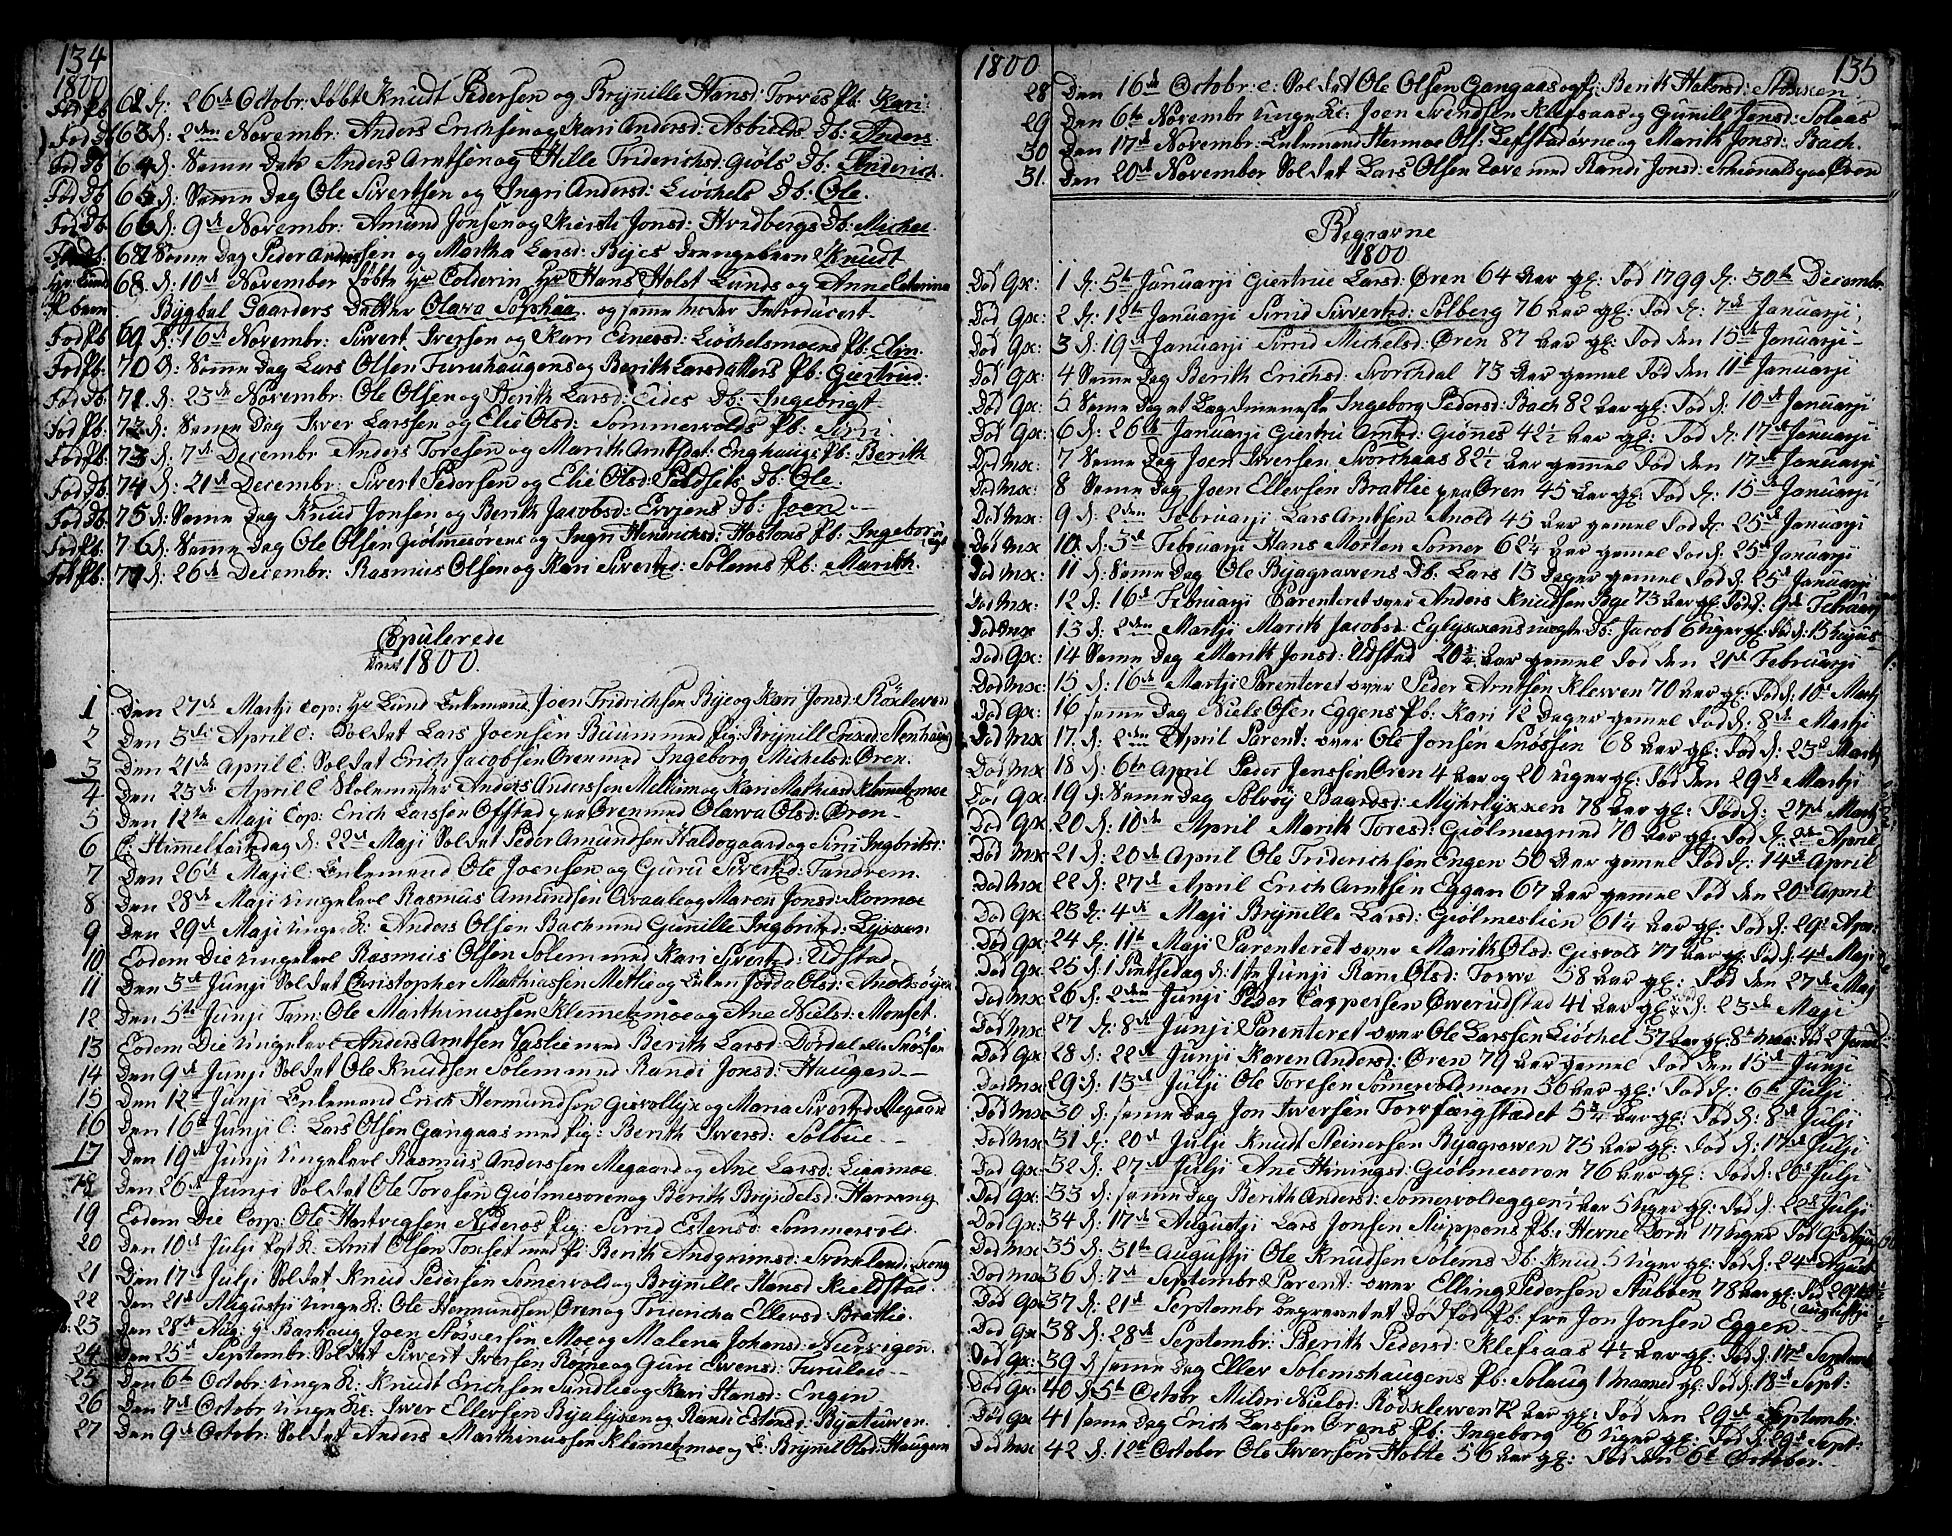 134
1800
Fød Pb: 62 d: 26de Octobr: døbt Knudt Pedersen og Brynille Hansd: Torves Pb: Kari.
Fød Db: 63 d: 2den Novembr: Anders Erichsen og Kari Andersd: Db: Anders
Fød Db: 64 d: Samme Dato Anders Arntsen og Hille Friderichsd: Giøls Db: Friderich.
Fød Db: 65 d: Samme Dag Ole Sivertsen og Ingri Andersd: Liøchels Db: Ole.
Fød Db: 66 d: 9de Novembr: Amund Jonsen og Kirsti Jonsd: Hvidbergs Db: Michel
67 Samme Dag Peder Andersen og Martha Larsd: Byes Drengebarn Knudt
68 d: 10de November døbte Hr Colderin Hr Hans Holst Lunds og Anne Catarina
Pbarn Bygbal Gaarders Datter Olava Sophia. og samme moder Introducert.
Fød Pb: 69 d: 16de Novembr: Sivert Iversen og Kari Einersd: Liøchelsmoens Pb: Elin.
Fød Pb: 70 d: Samme Dag Lars Olsen Furuhaugens og Berith Larsdatters Pb: Giertrud.
Fød Db: 71. d: 23de Novembr: Ole Olsen og Berith Larsd: Eides Db: Ingebrigt
Fød Pb: 72 d: Samme Dag Iver Larssen og Elie Olsd: Sommervolds Pb: Siri.
Fød Pb: 73 d: 7de Decembr Anders Toresen og Marith Arntsdat: Enghaugs Pb: Berith
Fød Db: 74 d: 21de Decembr: Sivert Pedersen og Elie Olsd: Db: Ole.
Fød Db: 75 d: Samme Dag Knud Jonsen og Berith Jacobsd: Db: Joen.
Fød Pb: 76 d: Samme Dag Ole Olsen Giølmesørens og Ingri Hendrichsd: Hostons Pb: Ingeborg
Fød Pb: 77 d: 26de Decembr: Rasmus Olsen og Kari Sivertsd: Solems Pb: Marith.
Copulerede
1800.
1 Den 27de Martji cop: Hr Lund Enkemand Joen Fridrichsen Bye og Kari Jonsd:
2 Den 3de April C: Soldat Lars Joensen Buum med Pig: Brynill
3 Den 21de April C: Soldat Erich Jacobsen Øren med Ingeborg Michelsd: Øren.
4 Den 23de April C Skolemester Anders Andersen Melhim og Kari Mathiasd Klemetzmoe
5 Den 12te Maji Cop: Erich Larssen Ofstad paa Øren med Olava Olsd: Øren.
6 C: Himmelfartsdag d: 22de Maji Soldat Peder Amundsen Haldogaard og Siri Ingbritsd:
7 Den 26de Maji C: Enkemand Ole Joensen og Guru Sivertsd: Fandrem.
8 Den 28de Maji ungekarl Rasmus Amundsen Qvaale og Maren Jonsd: Kormoe
9 Den 29de Maji unge K: Anders Olsen Bach med Gunille Ingbritsd: Lysxen
10 Eodem Die ungekarl Rasmus Olsen Solem med Kari Sivertsd: Udstad.
11 Den 3de Junji Soldat Christopher Mathiassen Metlie og Enken Jødda Olsd:
12 Den 5te Junji Tam: Ole Marthinussen Klemetzmoe og Ane Nielsd: Monset.
13 Eodem Die ungekarl Anders Arntsen Vaslie med Berith Larsd: Dørdal
14 Den 9de Junji Soldat Ole Knudsen Solem med Randi Jonsd: Haugen.
15 Den 12te Junji Enkemand Erich Hermundsen Gisvollys og Maria Sivertsd Megaard
16 Den 16de Junji C: Lars Olsen Gangaas med Pig: Berith Iversd: Solbue
17 Den 19de Junji ungekarl Rasmus Anderssen Megaard og Ane Larsd: Lianmoe
18 Den 26de Junji Soldat Ole Toresen Giølmesøren og Berith Bryndelsd: Harrang
19 Eodem Die Corp: Ole Hartvigsen Nideros Pig: Sirid Estensd: Sommervold
20 Den 10de Julji Post K: Arnt Olsen Tonset med Pi: Berith Andgrimsd:
21 Den 17de Julji Soldat Knud Pedersen Somervold og Brynille Hansd Kieldstad.
22 Den 21de Augustji unge K: Ole Hermundsen Øren og Fridricha Ellersd: Bratlie.
23 Den 28de Aug: Joen Størsersen Moe og Malena Johansd:
24 Den 25de Septembr: Soldat Sivert Iversen Rømme og Guri Evensd: Furulie
25 Den 6te Octobr: unge K: Knudt Erichsen Sundlie og Kari Hansd: Engen
26 Den 7de Octobr unge K: Iver Ellevsen Byalyxen og Randi Estensd: Byatuven.
27 Den 9de Octobr: Soldat Anders Marthinussen Klemetzmoe og E: Brynil Olsd: Haugen
1800
135
28 Den 16de Octobr: C: Soldat Ole Olsen Gangaas og Pi: Berith Halorsd: Stoxken.
29 Den 6te Novembr unge K: Joen Svendsen Klefsaas og Gunild Jonsd: Solaas
30 Den 17de Novembr: Enkemand Hermoe Ols: Leffstadørne og Marith Jonsd: Bach.
31. Den 20de November Soldat Lars Olsen med Randi Jonsd: Øren
Begravne
1800
Død Qx: 1 d: 5te Januarji Giertrue Larsd: Øren 64 aar gl: Død 1799 d: 30te Decembr
Død Qx: 2 d: 12te Januarji Sirid Sivertsd: Solberg 76 aar gl: Død d: 7de Januarji,
Død Qx: 3 d: 19de Januarji Sirid Michelsd: Øren 87 aar gl: Død den 15de Januarji
Død Qx: 4 Samme Dag Berith Erichsd: Svorchdal 73 aar gamel Død den 11te Januarji
Død Qx: 5 Samme Dag et Lagdmenneske Ingeborg Pedersd: Bach 82 aar gl: Død d: 10de Januarji
Død Qx: 6 d: 26de Januarji Giertru Arntsd: Giønnes 42½ aar gl: Død d: 17de Januarji
Død Mx: 7 Samme Dag Joen Iversen Svorchaas 82½ aar gamel Død den 17de Januarji
Død Mx: 8 Samme Dag Joen Ellevsen Bratlie paa Øren 45 aar gl: Død d: 15de Januarji
Død Mx: 9 d: 2den Februarji Lars Arntsen Anold 45 aar gamel Død d: 25de Januarji
Død Mx 10 d: 5te Februarji Hans Morten Somer 62¼ aar gamel Død den 25de Januarji
Død Mx: 11 d: Samme Dag Ole Byagravens Db: Lars 13 Dager gamel Død d: 25de Januarji
Død Mx: 12 d: 16de Februarji Parenteret over Anders Knudsen Bye 73 aar gl: Død d: 9de Februarj
Død Mx 13 d: 2den Martji Marith Jacobsd: Db: Jacob 6 uger gl:
Død Qx: 14 Samme Dag Marith Jonsd: Udstad 20¾ aar gamel Død den 21de Februarji
Død Mx: 15 d: 16de Martji Parenteret over Peder Arntsen Kleven 70 aar gl: Død d: 10de Martj
Død Qx: 16 samme Dag Niels Olsen Eggens Pb: Kari 12 Dager gamel Død d: 8de Martji
Død Mx 17. d: 2den April Parent: over Ole Jonsen Snøssen 68 aar gl: Død d: 23de Martj
Død Mx 18 d: 6te April Peder Jenssen Øren 4 aar og 20 uger gl: Død den 29de Martji
Død Qx: 19 d: Samme Dag Solvøy Baardsd: Myhrlyxxen 78 aar gl: Død d: 27de Martj
Død Qx 20 d: 10de April Marith Toresd: Giølmesgrind 70 aar gl: Død d: 2den April
Død Mx: 21 d: 20de April Ole Friderichsen Engen 50 aar gamel Død d: 14de April
Død Mx 22 d: 27de April Erich Arntsen Eggan 67 aar gamel Død den 20de April
Død Qx 23 d: 4de Maji Brynille Larsd: Giølmeslien 61¼ aar gl: Død d: 29de Apr:
Død Qx 24 d: 11te Maji Parenteret over Marith Olsd: Gisvold 77 aar gl: Død d: 4de Maji
Død Qx 25 d: 1 Pintsedag d: 1te Junji Rane Olsd: Torve 58 aar gl: Død den 27de Maj
Død Mx 26 d: 2den Junji Peder Casspersen Øverudstad 41 aar gl: d: 23de Maji
Død Mx: 27 d: 8de Junji Parenteret over Ole Larssen Liøchel 57 aar gl:
Død Qx 28 d: 22de Junji Karen Andersd: Øren 79 aar gamel Død den 15de Junji
Død Mx 29 d: 13de Julji Ole Toresen Somervoldmoen 36 aar gl: Død d: 6te Julji
Død Mx 30 d: samme Dag Jon Iversen 5¾ aar gl: Død d: 8de Julji
Død Mx: 31 d: 20de Julji Knudt Steinersen Byagraven 75 aar gl: Død d: 17de Julji
Død Qx: 32 d: 27de Julji Ane Hiningsd: Giølmesøran 76 aar gl: Død d: 20de Julji
Død Qx: 33 d: samme Dag Berith Andersd: Somervoldeggen aar 5 uger gl: Død d: 22de Julji
Død Qx: 34 d: 17de Augustji Lars Jonsen Pb: Herne Dorn 17 uger
Død Mx 35 d: 31te Augustji Ole Knudsen Solems Db: Knud 5 uger gl: Død d: 24de August
Død Mx 36 d: 7de Septembr Parent: over Elling Pedersen Stubben 78 aar gl: Død 29de Augustji
Død Qx 37 d: 21de Septembr Begravet et dødfød Pb: fra Jon Jonsen Eggen
Død Qx: 38 d: 28de Septembr: Berith Pedersd: Klefsaas 4½ aar gl: Død d: 17de Septembr
Død Qx: 39 d: samme Dag Eller Solemshaugens Pb: Solaug 1 maaned gl: Død d: 18de Sept:
Død Qx: 40 d: 5te Octobr Mildri Nielsd: Rødsklevven 72 aar gl: Død den 29de Septembr:
Død Qx 41 samme Dag Erich Larssen Ørens Pb: Ingeborg 6 uger gl: Død d: 29de Sept:
Død Mx 42 d: 12te October Ole Iversen Holte 56 aar gl: Død den 6te October.